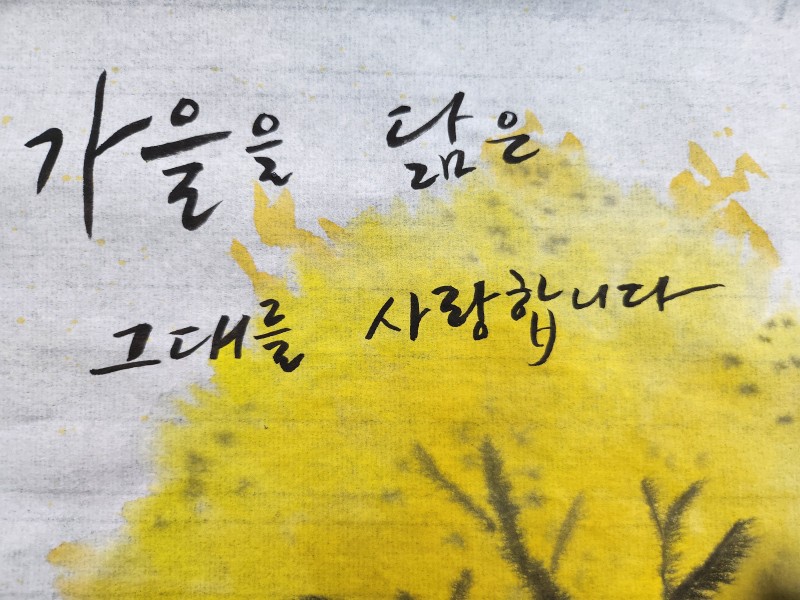 가을을 닮은
그대를 사랑합니다